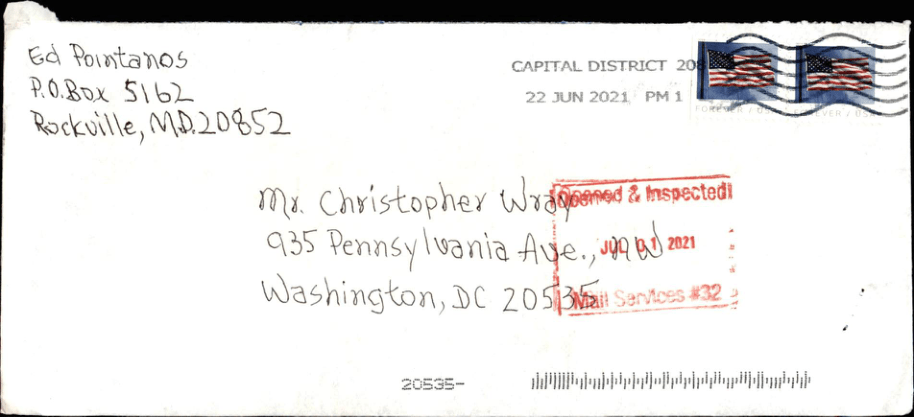 Ed Pointanos
P.O.Box 5162
Rockville, MD.20852
CAPITAL DISTRICT 208
22 JUN 2021 PM 1
FOREVER / USA
FOREVER / USA
Mr. Christopher Wray
935 Pennsylvania Ave., NW
Washington, DC 20535
Opened & Inspected!
JUL 01 2021
Mail Services #32
20535-